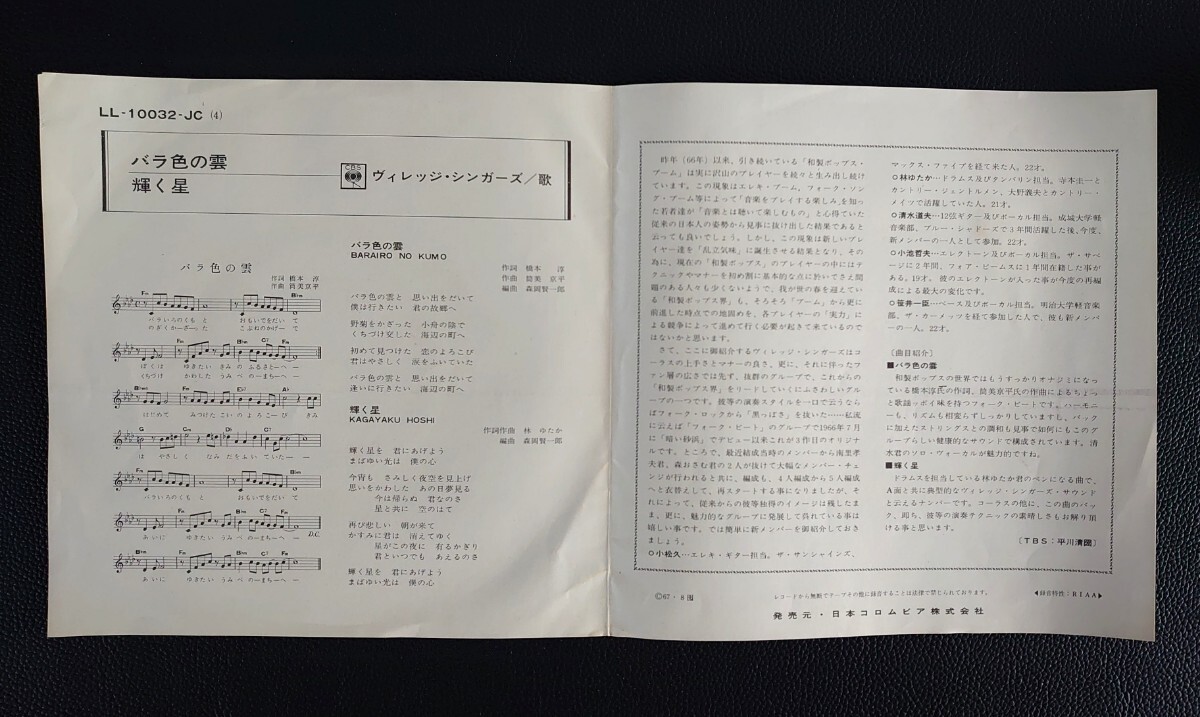 LL-10032-JC (4)
バラ色の雲
輝く星
CBS
ヴィレッジ・シンガーズ/歌
バラ色の雲
作詞 橋本 淳
作曲 筒美京平
バラ色の雲
BARAIRO NO KUMO
作詞 橋本 淳
作曲 筒美 京平
編曲 森岡賢一郎
バラ色の雲と 思い出をだいて
僕は行きたい 君の故郷へ
野菊をかざった 小舟の陰で
くちづけ交した 海辺の町へ
初めて見つけた 恋のよろこび
君はやさしく 涙をふいていた
バラ色の雲と 思い出をだいて
逢いに行きたい 海辺の町へ
輝く星
KAGAYAKU HOSHI
作詞作曲 林 ゆたか
編曲 森岡賢一郎
輝く星を 君にあげよう
まばゆい光は 僕の心
今宵も さみしく夜空を見上げ
思いをかわした あの日夢見る
今は帰らぬ 君なのさ
星と共に 空のはて
再び悲しい 朝が来て
かすみに君は 消えてゆく
星がこの夜に 有るかぎり
君といつでも あえるのさ
輝く星を 君にあげよう
まばゆい光は 僕の心
バラいろのくもと おもいでをだいて
のぎくかーざーった こぶねのかげーで
ぼくは ゆきたい きみの ふるさとーへー
くちづけ かわした うみべの まちーへー
はじめて みつけた こい の よ ろ こ び きみ
は やさしく なみ だをふい ていたー
バラいろのくもと おもいでをだいて
あいに ゆきたい うみべ の ーまちー へ ー D.C.
あいに ゆきたい うみべ の ーまちー へ ー
昨年(66年)以来、引き続いている「和製ポップス・
ブーム」は実に沢山のプレイヤーを続々と生み出し続け
ています。この現象はエレキ・ブーム、フォーク・ソン
グ・ブーム等によって「音楽をプレイする楽しみ」を知っ
た若者達が「音楽とは聴いて楽しむもの」と心得ていた
従来の日本人の姿勢から見事に抜け出した結果であると
云っても良いでしょう。しかし、この現象は新しいプレ
イヤー達を「乱立気味」に誕生させる結果となり、その
為に、現在の「和製ポップス」のプレイヤーの中にはテ
クニックやマナーを初め割に基本的な点に於いてさえ問
題のある人々も少くないようで、我が世の春を迎えてい
る「和製ポップス界」も、そろそろ「ブーム」から更に
前進した時点での地固めを、各プレイヤーの「実力」に
よる競争によって進めて行く必要が起きて来ているので
はないかと思います。
さて、ここに御紹介するヴィレッジ・シンガーズはコ
ーラスの上手さとマナーの良さ、更に、それに伴ったフ
ァン層の広さでは先ず、抜群のグループで、これからの
「和製ポップス界」をリードしていくにふさわしいグル
ープの一つです。彼等の演奏スタイルを一口で云うなら
ばフォーク・ロックから「黒っぽさ」を抜いた……私流
に云えば「フォーク・ビート」のグループで1966年7月
に「暗い砂浜」でデビュー以来これが3作目のオリジナ
ルです。ところで、最近結成当時のメンバーから南里孝
夫君、森おさむ君の2人が抜けて大幅なメンバー・チェ
ンジが行われると共に、編成も、4人編成から5人編成
へと衣替えして、再スタートする事になりましたが、そ
れによって、従来からの彼等独得のイメージは残したま
ま、更に、魅力的なグループに発展して呉れている事は
嬉しい事です。では簡単に新メンバーを御紹介しておき
ましょう。
○小松久…エレキ・ギター担当。ザ・サンシャインズ、
マックス・ファイブを経て来た人。22才。
○林ゆたか…ドラムス及びタンバリン担当。寺本圭一と
カントリー・ジェントルメン、大野義夫とカントリー・
メイツで活躍していた人。21才。
○清水道夫…12弦ギター及びボーカル担当。成城大学軽
音楽部、ブルー・シャドーズで3年間活躍した後、今度、
新メンバーの一人として参加。22才。
○小池哲夫…エレクトーン及びボーカル担当。ザ・サベ
ージに2年間、フォア・ビームスに1年間在籍した事が
ある。19才。彼のエレクトーンが入った事が今度の再編
成による最大の変化です。
○笹井一臣…ベース及びボーカル担当。明治大学軽音楽
部、ザ・カーメッツを経て参加した人で、彼も新メンバ
ーの一人。22才。
〔曲目紹介〕
■バラ色の雲
和製ポップスの世界ではもうすっかりオナジミになっ
ている橋本淳氏の作詞、筒美京平氏の作曲によるちょっ
と歌謡ッポイ味を持つフォーク・ビートです。ハーモニ
ーも、リズムも相変らずしっかりしていますし、バック
に加えたストリングスとの調和も見事で如何にもこのグ
ループらしい健康的なサウンドで構成されています。清
水君のソロ・ヴォーカルが魅力的ですね。
■輝く星
ドラムスを担当している林ゆたか君のペンになる曲で、
A面と共に典型的なヴィレッジ・シンガーズ・サウンド
と云えるナンバーです。コーラスの他に、この曲のバッ
ク、即ち、彼等の演奏テクニックの素晴しさもお解り頂
ける事と思います。
〔TBS:平川清圀〕
Ⓒ67・8
レコードから無断でテープその他に録音することは法律で禁じられております。
◀録音特性:RIAA▶
発売元・日本コロムビア株式会社